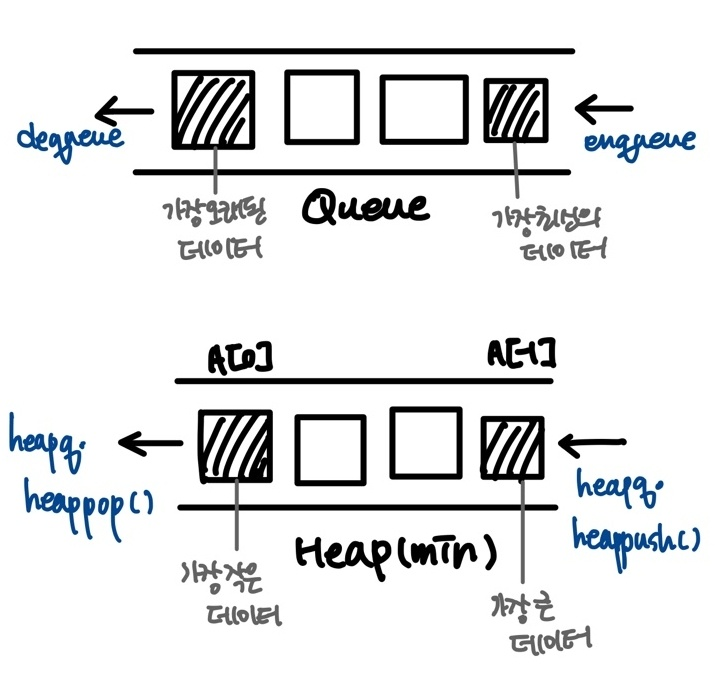 dequeue
enqueue
가장 오래된
데이터
Queue
가장 최신의
데이터
A[0]
A[-1]
heapq.
heappop()
heapq.
heappush()
Heap(min)
가장 작은
데이터
가장 큰
데이터